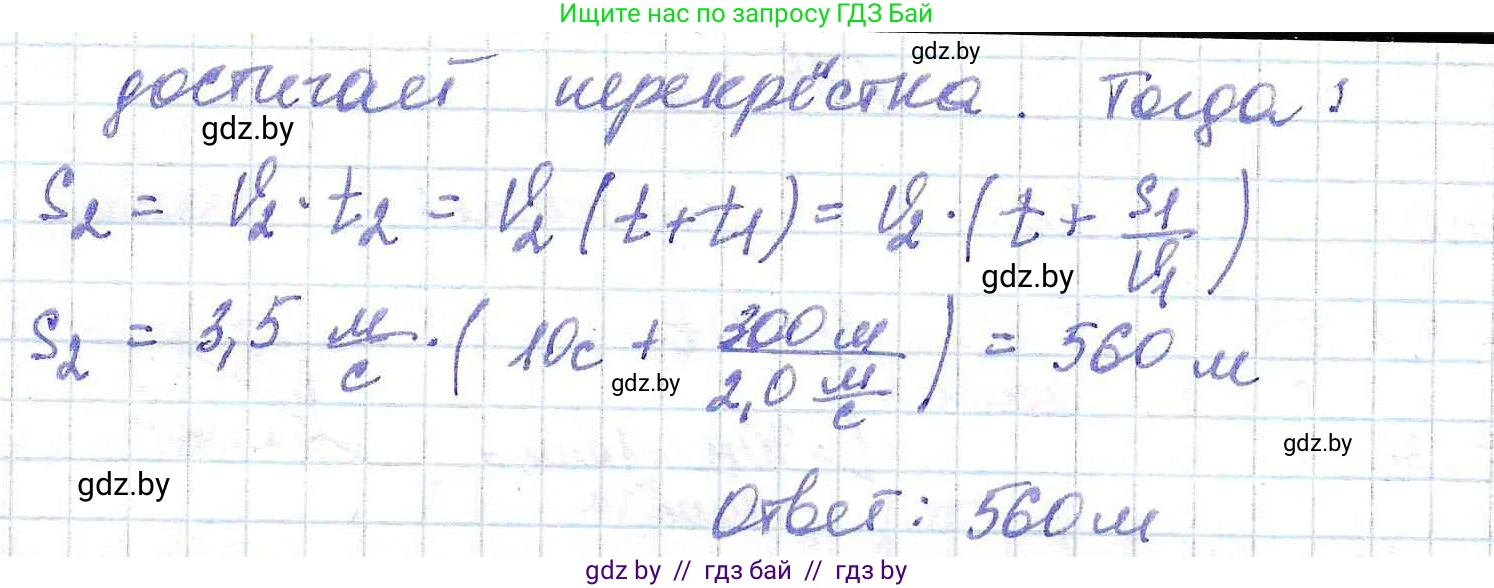 Ищите нас по запросу ГДЗ Бай
gdz.by
достигает перекрёстка. Тогда:
gdz.by
S₂ = υ₂·t₂ = υ₂(t+t₁) = υ₂·(t + S₁/υ₁)
gdz.by
S₂ = 3,5 м/с·(10с + 300м/2,0 м/с) = 560 м
gdz.by
gdz.by
gdz.by
Ответ: 560м
gdz by // гдз бай // гдз by